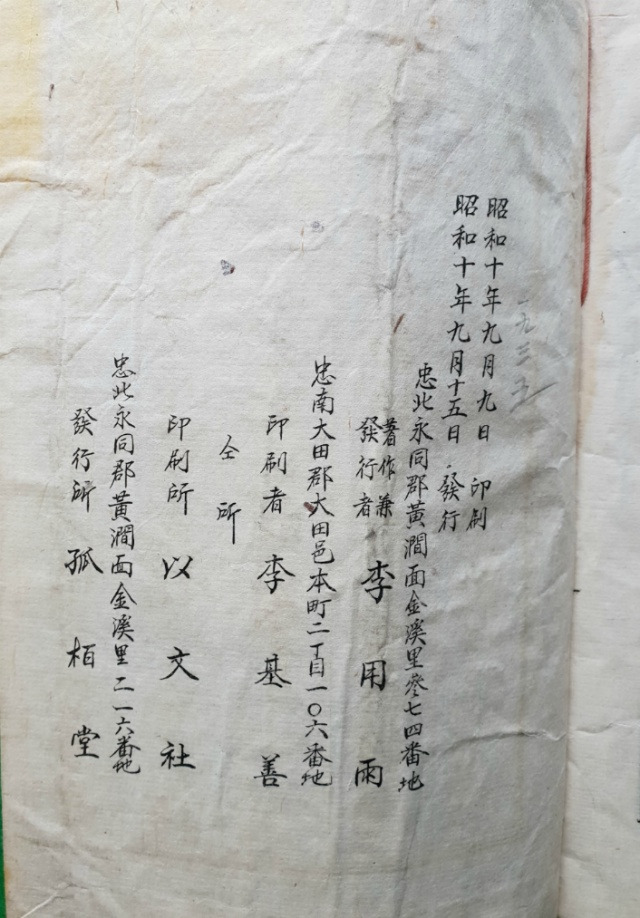 一九三五
昭和十年九月九日 印刷
昭和十年九月十五日 發行
忠北永同郡黃澗面金溪里參七四番地
著作兼
發行者 李用雨
忠南大田郡大田邑本町二丁目一〇六番地
印刷者 李基善
仝所
印刷所 以文社
忠北永同郡黃澗面金溪里二一六番地
發行所 孤栢堂